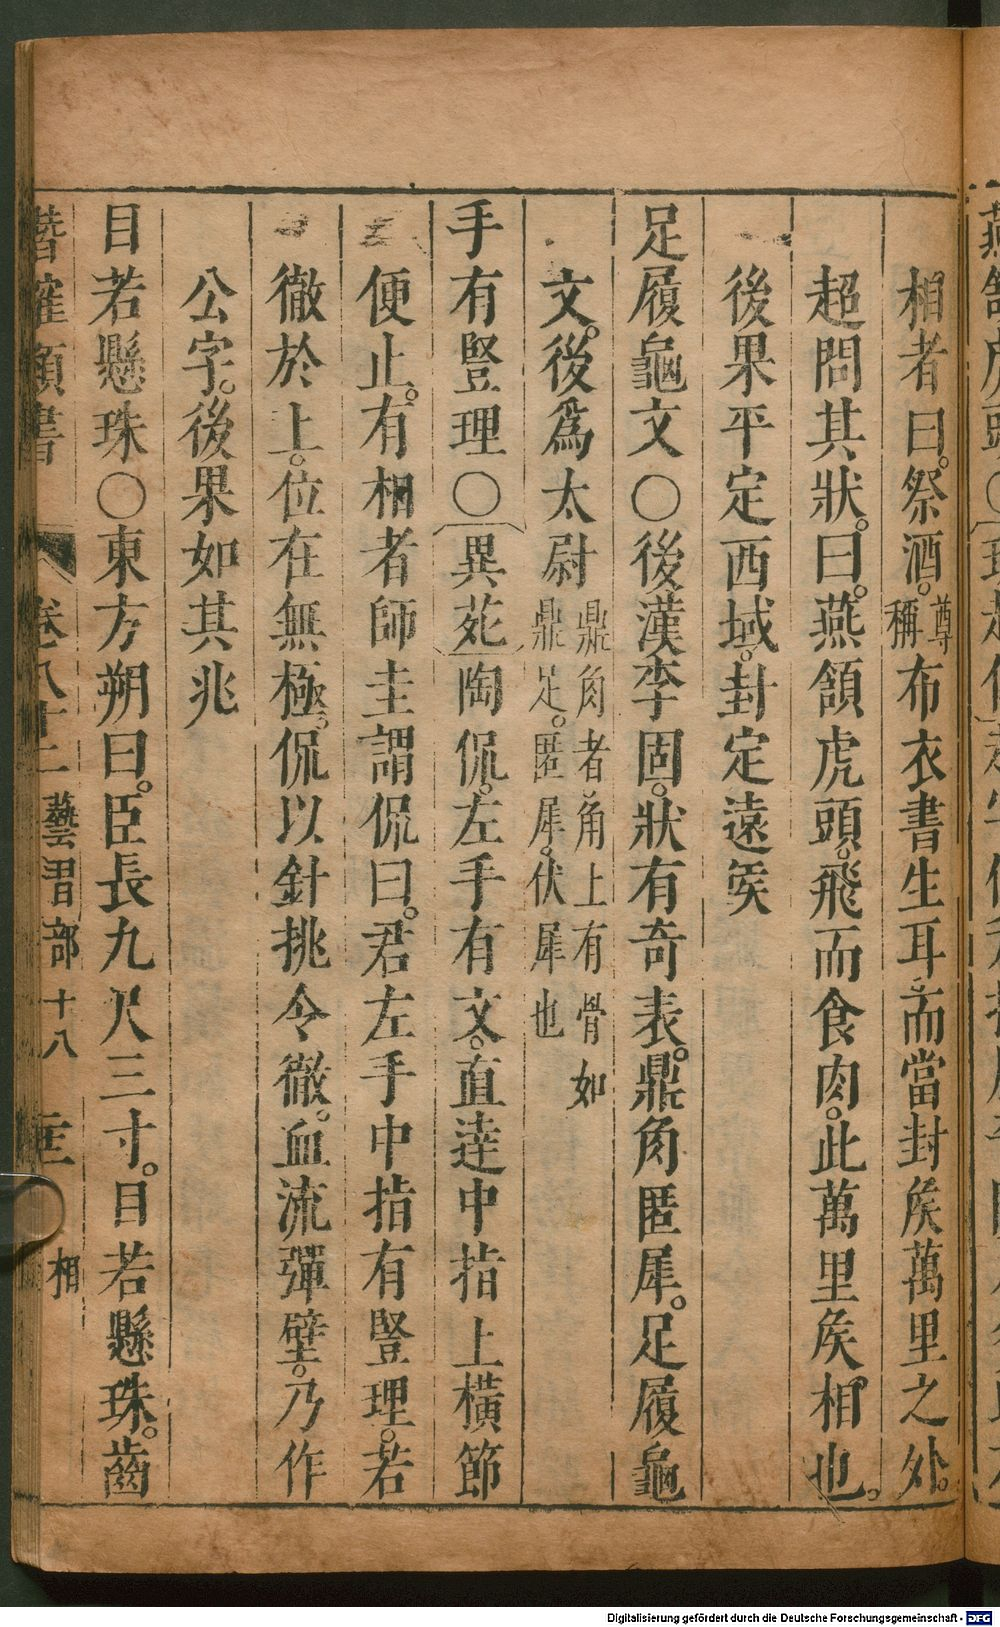 相者曰。祭酒。尊稱布衣書生耳、而當封矦萬里之外。
超問其狀。曰。燕頷虎頭。飛而食肉。此萬里矦相也。
後果平定西域。封定遠矦
足履龜文○後漢李固。狀有奇表。鼎角匿犀。足履龜
文。後爲太尉鼎角者、角上有骨如鼎足。匿犀。伏犀也
手有豎理○異苑陶侃。左手有文。直達中指上橫節
便止。有相者師圭謂侃曰。君左手中指有豎理。若
徹於上。位在無極。侃以針挑令徹。血流彈壁。乃作
公字。後果如其兆
目若懸珠○東方朔曰。臣長九尺三寸。目若懸珠。齒
潛確類書 卷八十二 藝習部十八 相
Digitalisierung gefördert durch die Deutsche Forschungsgemeinschaft - DFG